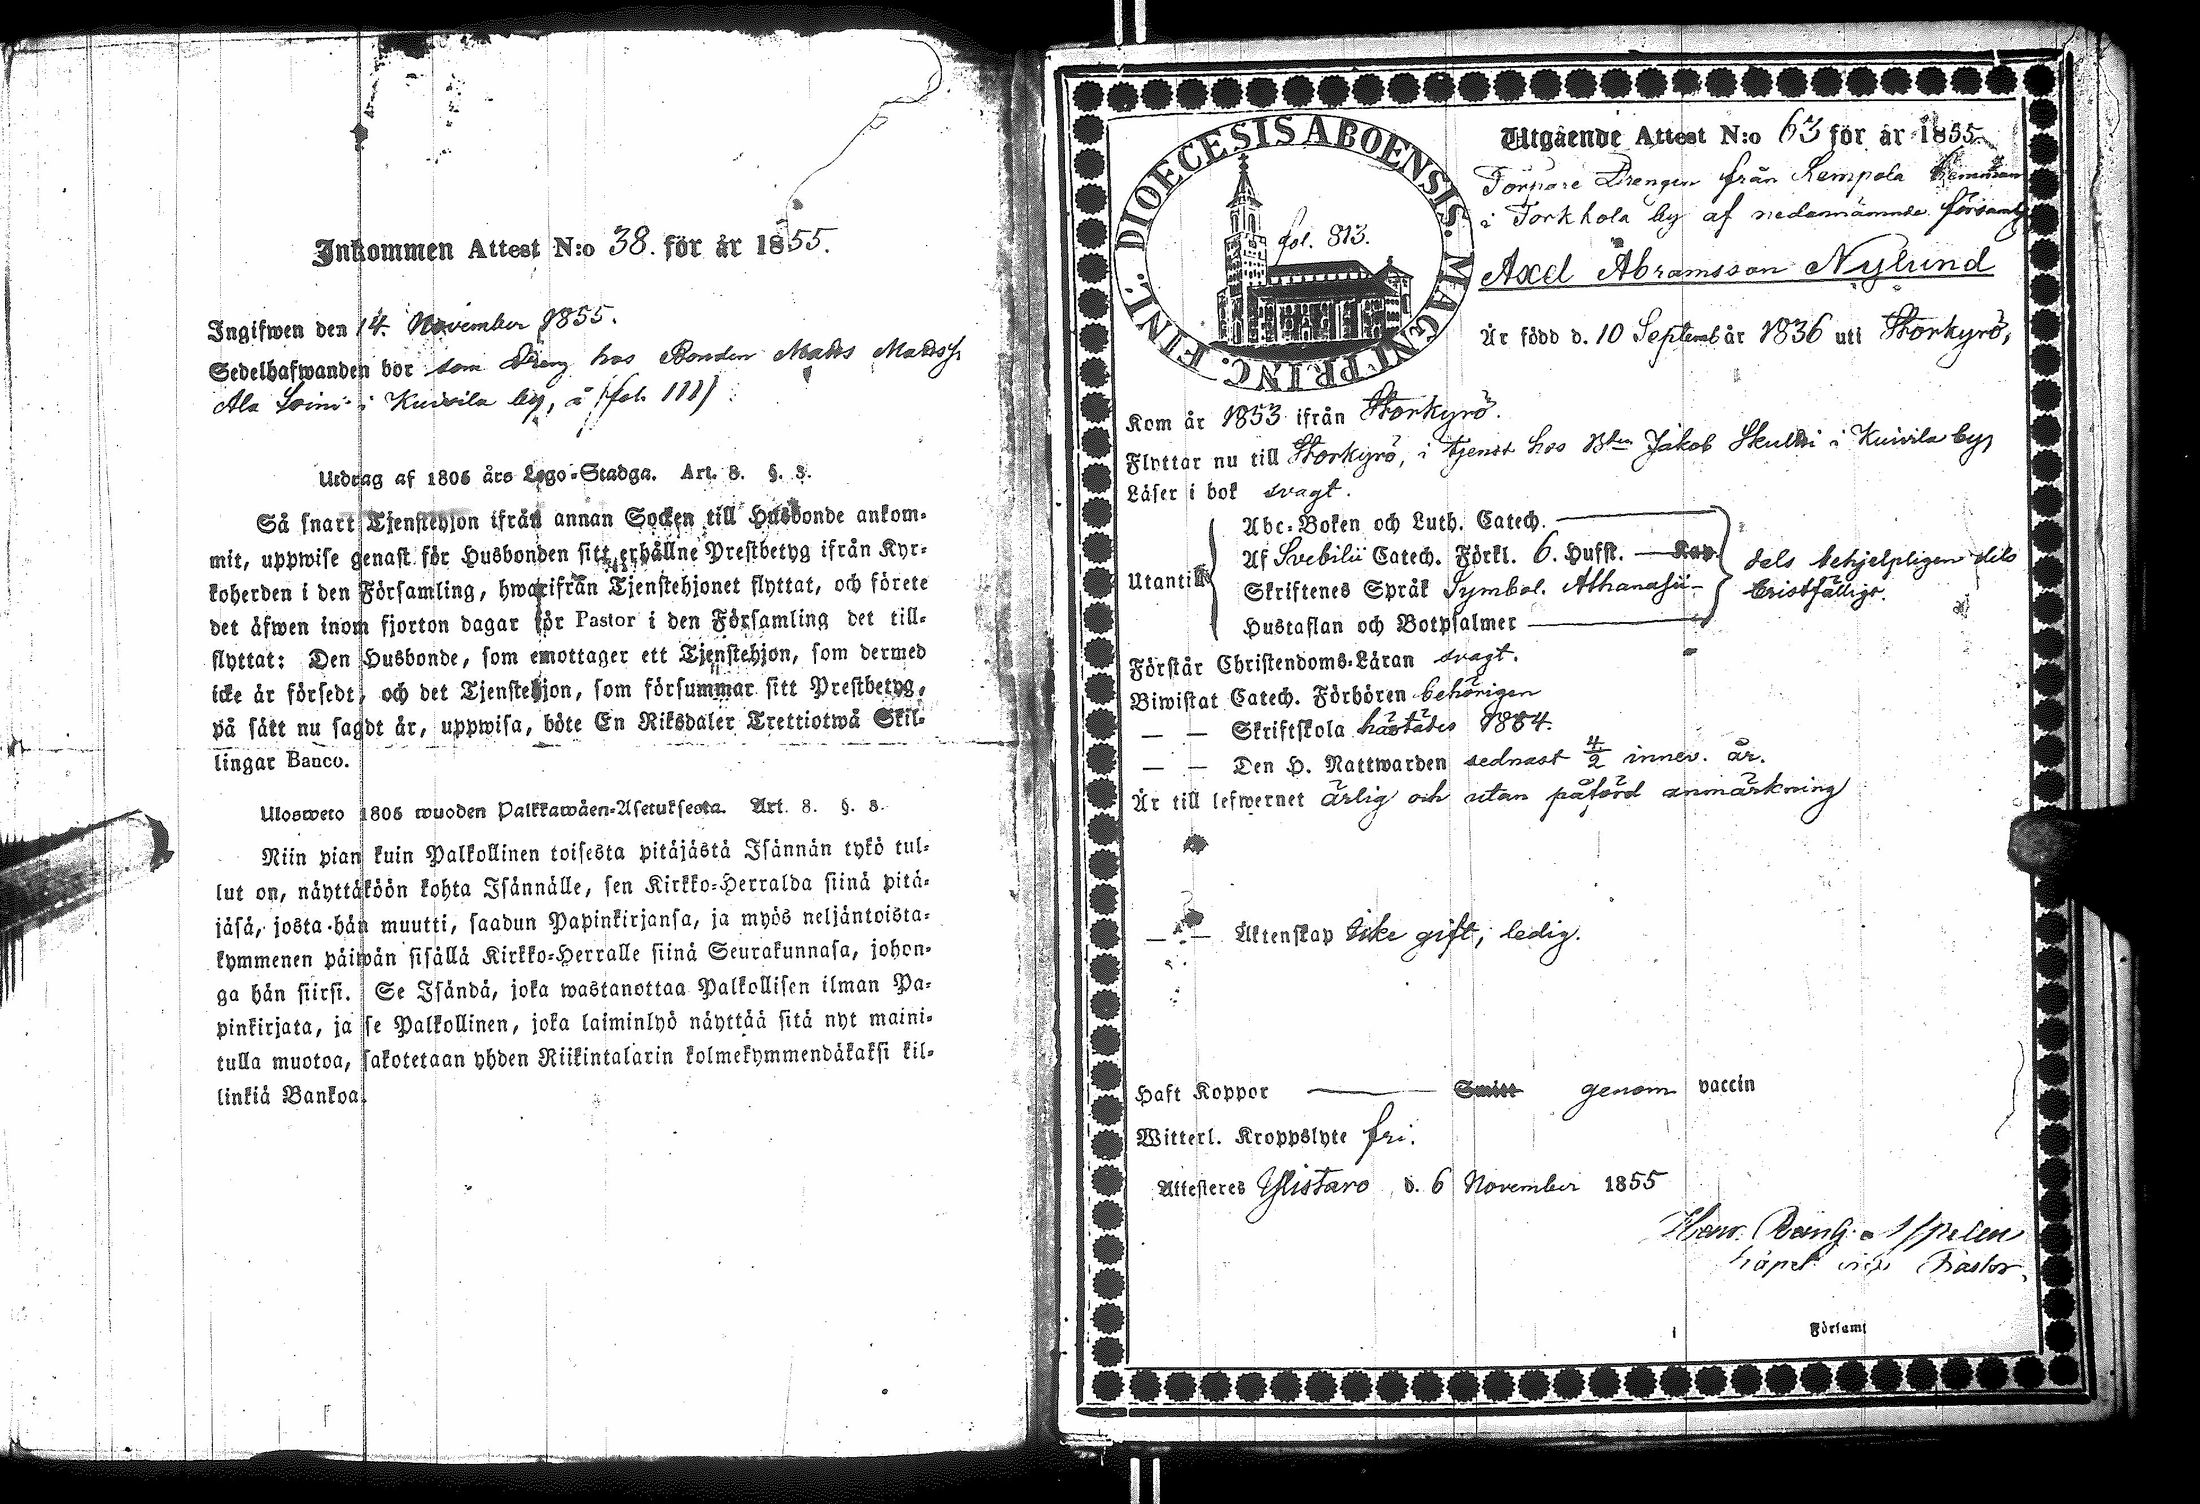 Inkommen Attest N:o 38. för år 1855.
Ingifwen den 14. November 1855.
Sedelhafwanden bor som Dreng hos Bonden Matts Mattss.
Ala Soini i Kuivila by, å (fol. 111)
Utdrag af 1805 års Lego-Stadga. Art. 8. §. 3.
Så snart Tjenstehjon ifrån annan Socken till Husbonde ankom-
mit, uppwise genast för Husbonden sitt erhållne Prestbetyg ifrån Kyr-
koherden i den Församling, hwarifrån Tjenstehjonet flyttat, och förete
det äfwen inom fjorton dagar för Pastor i den Församling det till-
flyttat: Den Husbonde, som emottager ett Tjenstehjon, som dermed
icke är försedt, och det Tjenstehjon, som försummar sitt Prestbetyg,
på sätt nu sagdt är, uppwisa, böte En Riksdaler Trettiotwå Skil-
lingar Banco.
Ulosweto 1805 wuoden Palkkawäen-Asetuksesta. Art. 8. §. 3.
Niin pian kuin Palkollinen toisesta pitäjästä Isännän tykö tul-
lut on, näyttäköön kohta Isännälle, sen Kirkko-Herralda siinä pitä-
jäsä, josta hän muutti, saadun Papinkirjansa, ja myös neljäntoista-
kymmenen päiwän sisällä Kirkko-Herralle siinä Seurakunnasa, johon-
ga hän siirsi. Se Isändä, joka wastanottaa Palkollisen ilman Pa-
pinkirjata, ja se Palkollinen, joka laiminlyö näyttää sitä nyt maini-
tulla muotoa, sakotetaan yhden Riikintalarin kolmekymmendäkaksi kil-
linkiä Bankoa.
DIOECESIS ABOENSIS. MAGNI PRINC. FINL.
fol. 813.
Utgående Attest N:o 63 för år 1855.
Torpare Drengen från Kempola
i Torkkola by af nedannämnde församlg
Axel Abramsson Nylund
Är född d. 10 Septemb år 1836 uti Storkyrö,
Kom år 1853 ifrån Storkyrö.
Flyttar nu till Storkyrö, i tjenst hos Bdn Jakob Skultti i Kuivila by,
Läser i bok svagt.
Utantill
Abc-Boken och Luth. Catech.
Af Svebilii Catech. Förkl. 6. Hufst. Kap.
Skriftenes Språk Symbol. Athanasii
Hustaflan och Botpsalmer
dels behjelpligen dels
bristfälligt.
Förstår Christendoms-Läran svagt.
Biwistat Catech. Förhören behörigen
— — Skriftskola 1854.
— — Den H. Nattwarden sednast 4/2 innev. år.
Är till lefwernet ärlig och utan påförd anmärkning
— — Äktenskap icke gift, ledig.
Haft Koppor — Smitt genom vaccin
Witterl. Kroppslyte fri.
Attesteres Ylistaro d. 6 November 1855
Pastor.
Församl